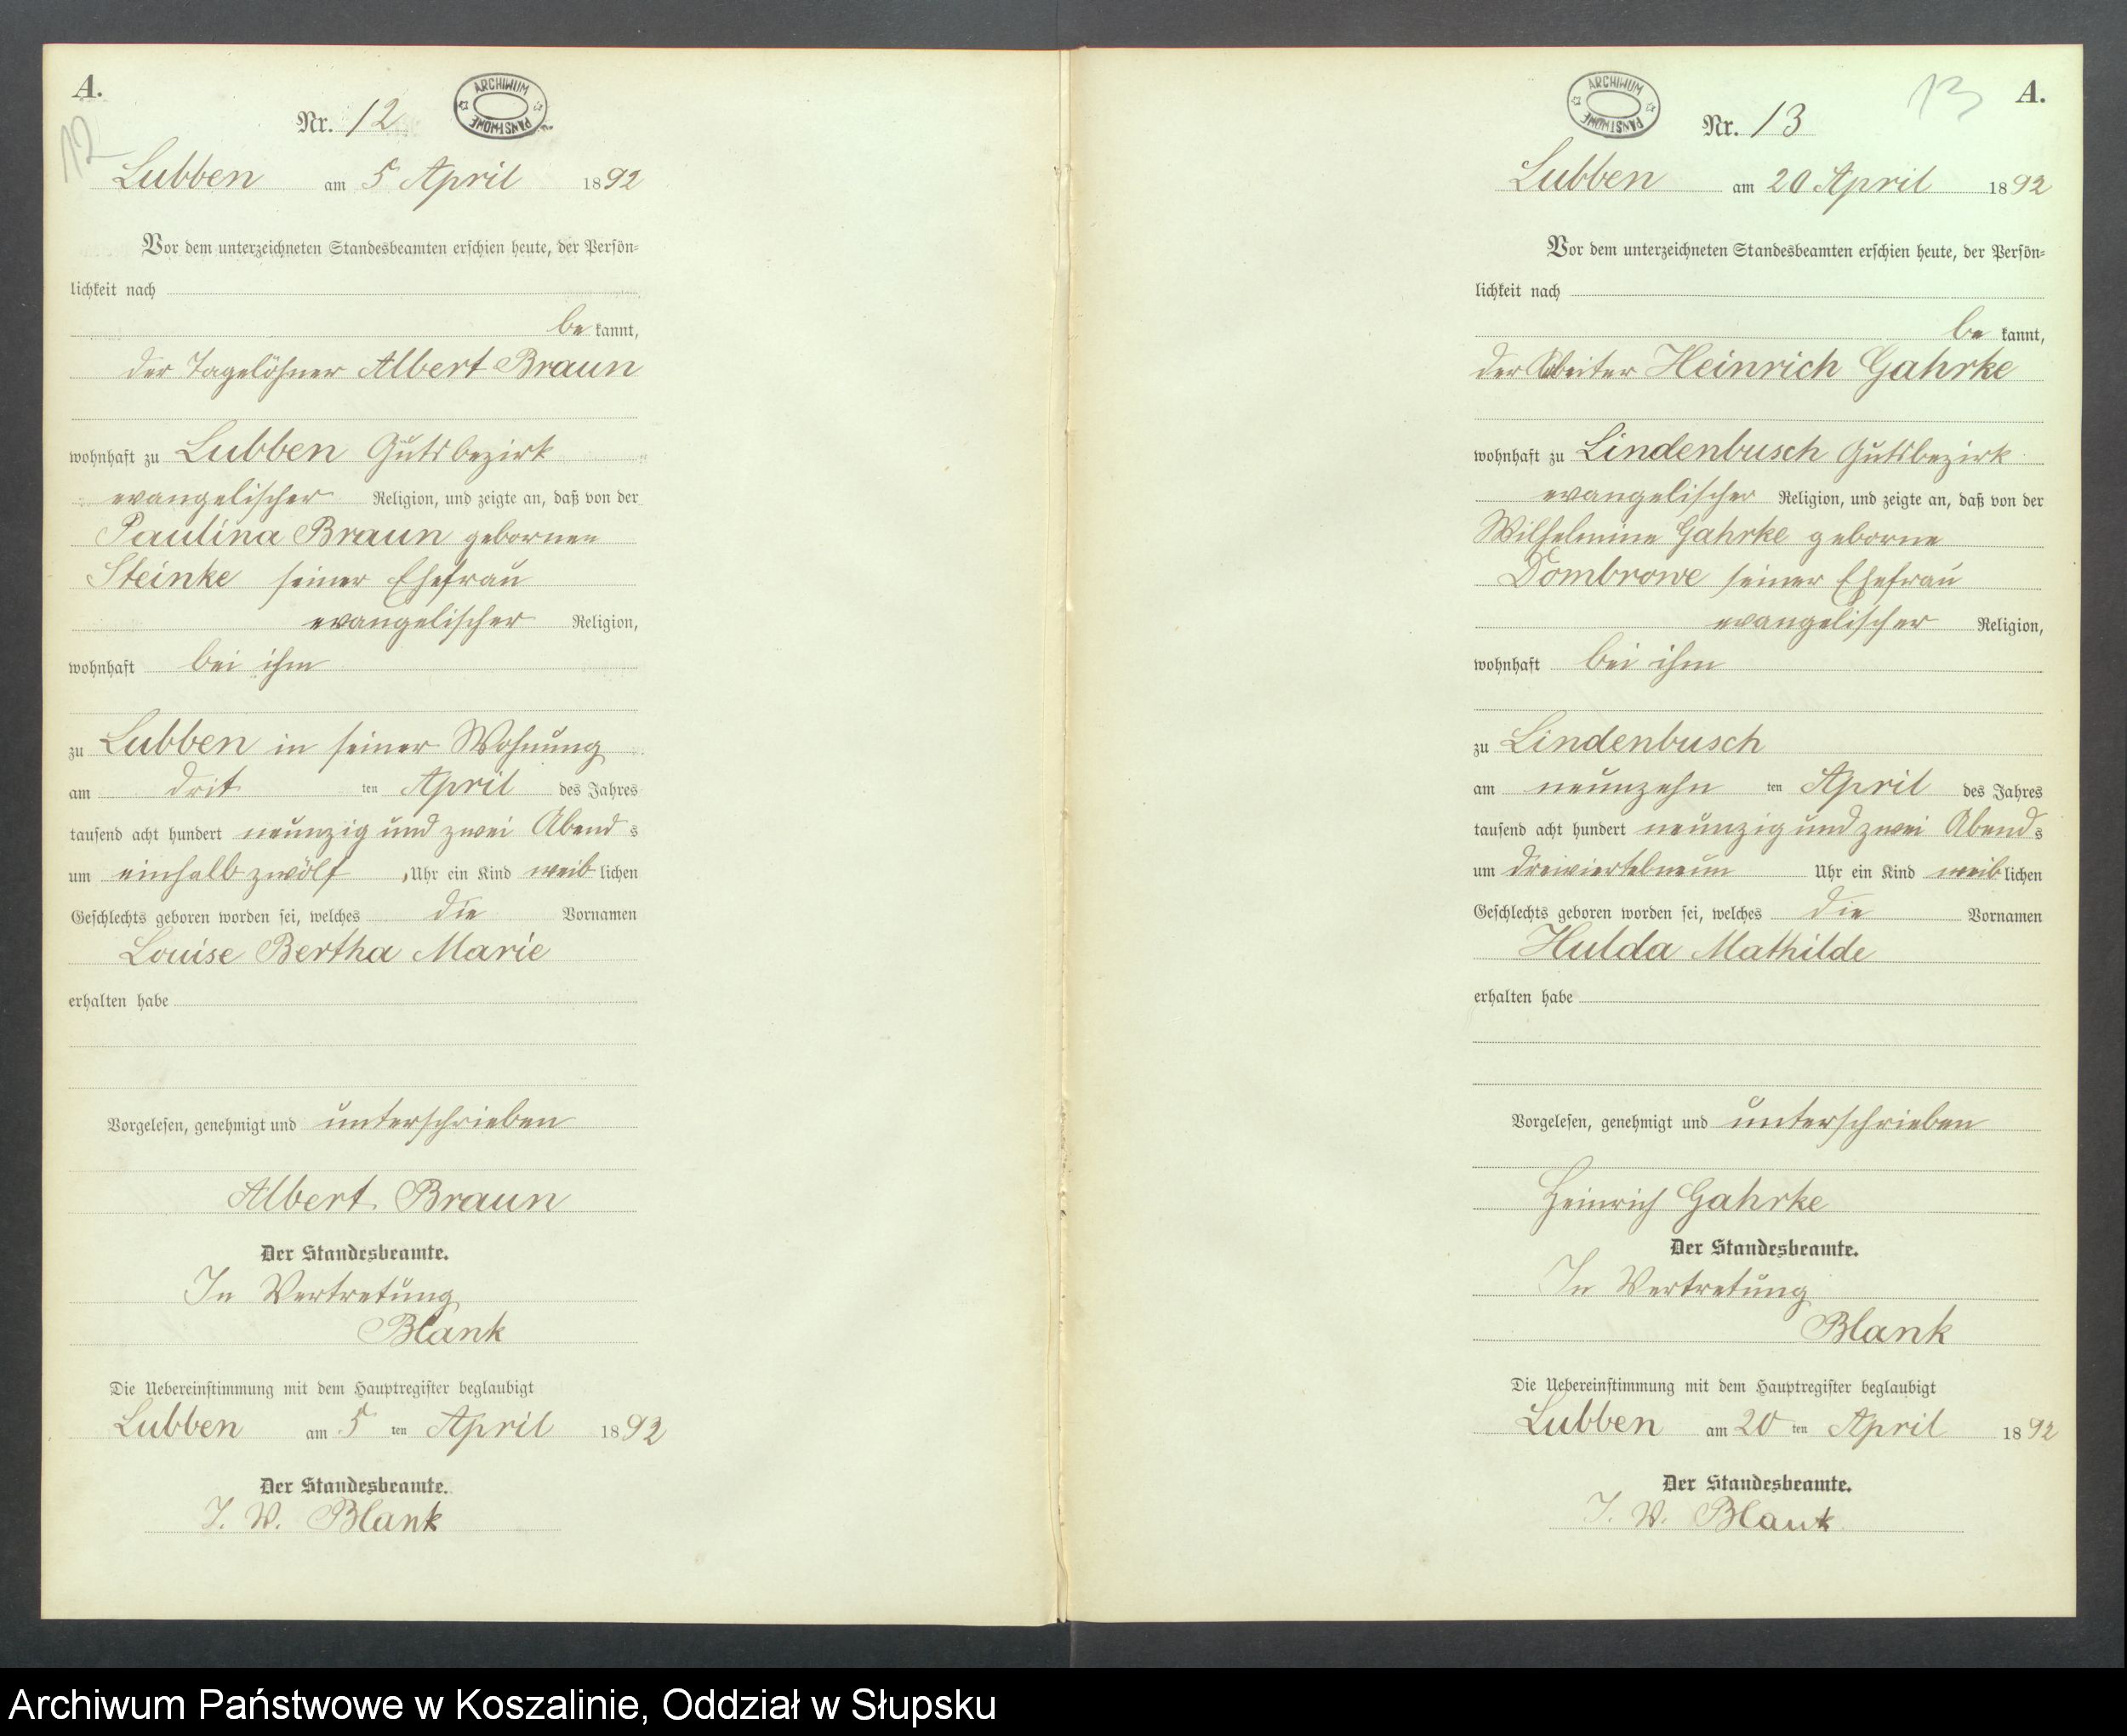 A.
12
Nr. 12
ARCHIWUM PAŃSTWOWE
Lubben am 5 April 1892
Vor dem unterzeichneten Standesbeamten erschien heute, der Persön-
lichkeit nach
be kannt,
der Tagelöhner Albert Braun
wohnhaft zu Lubben Gutsbezirk
evangelischer Religion, und zeigte an, daß von der
Paulina Braun gebornen
Steinke seiner Ehefrau
evangelischer Religion,
wohnhaft bei ihm
zu Lubben in seiner Wohnung
am drit ten April des Jahres
tausend acht hundert neunzig und zwei Abend s
um einhalb zwölf Uhr ein Kind weib lichen
Geschlechts geboren worden sei, welches die Vornamen
Louise Bertha Marie
erhalten habe
Vorgelesen, genehmigt und unterschrieben
Albert Braun
Der Standesbeamte.
In Vertretung
Blank
Die Uebereinstimmung mit dem Hauptregister beglaubigt
Lubben am 5 ten April 1892
Der Standesbeamte.
I. V. Blank
A.
13
Nr. 13
ARCHIWUM PAŃSTWOWE
Lubben am 20 April 1892
Vor dem unterzeichneten Standesbeamten erschien heute, der Persön-
lichkeit nach
be kannt,
der Arbeiter Heinrich Gahrke
wohnhaft zu Lindenbusch Gutsbezirk
evangelischer Religion, und zeigte an, daß von der
Wilhelmine Gahrke geborne
Dombrowe seiner Ehefrau
evangelischer Religion,
wohnhaft bei ihm
zu Lindenbusch
am neunzehn ten April des Jahres
tausend acht hundert neunzig und zwei Abend s
um dreiviertelneun Uhr ein Kind weib lichen
Geschlechts geboren worden sei, welches die Vornamen
Hulda Mathilde
erhalten habe
Vorgelesen, genehmigt und unterschrieben
Heinrich Gahrke
Der Standesbeamte.
In Vertretung
Blank
Die Uebereinstimmung mit dem Hauptregister beglaubigt
Lubben am 20 ten April 1892
Der Standesbeamte.
I. V. Blank
Archiwum Państwowe w Koszalinie, Oddział w Słupsku